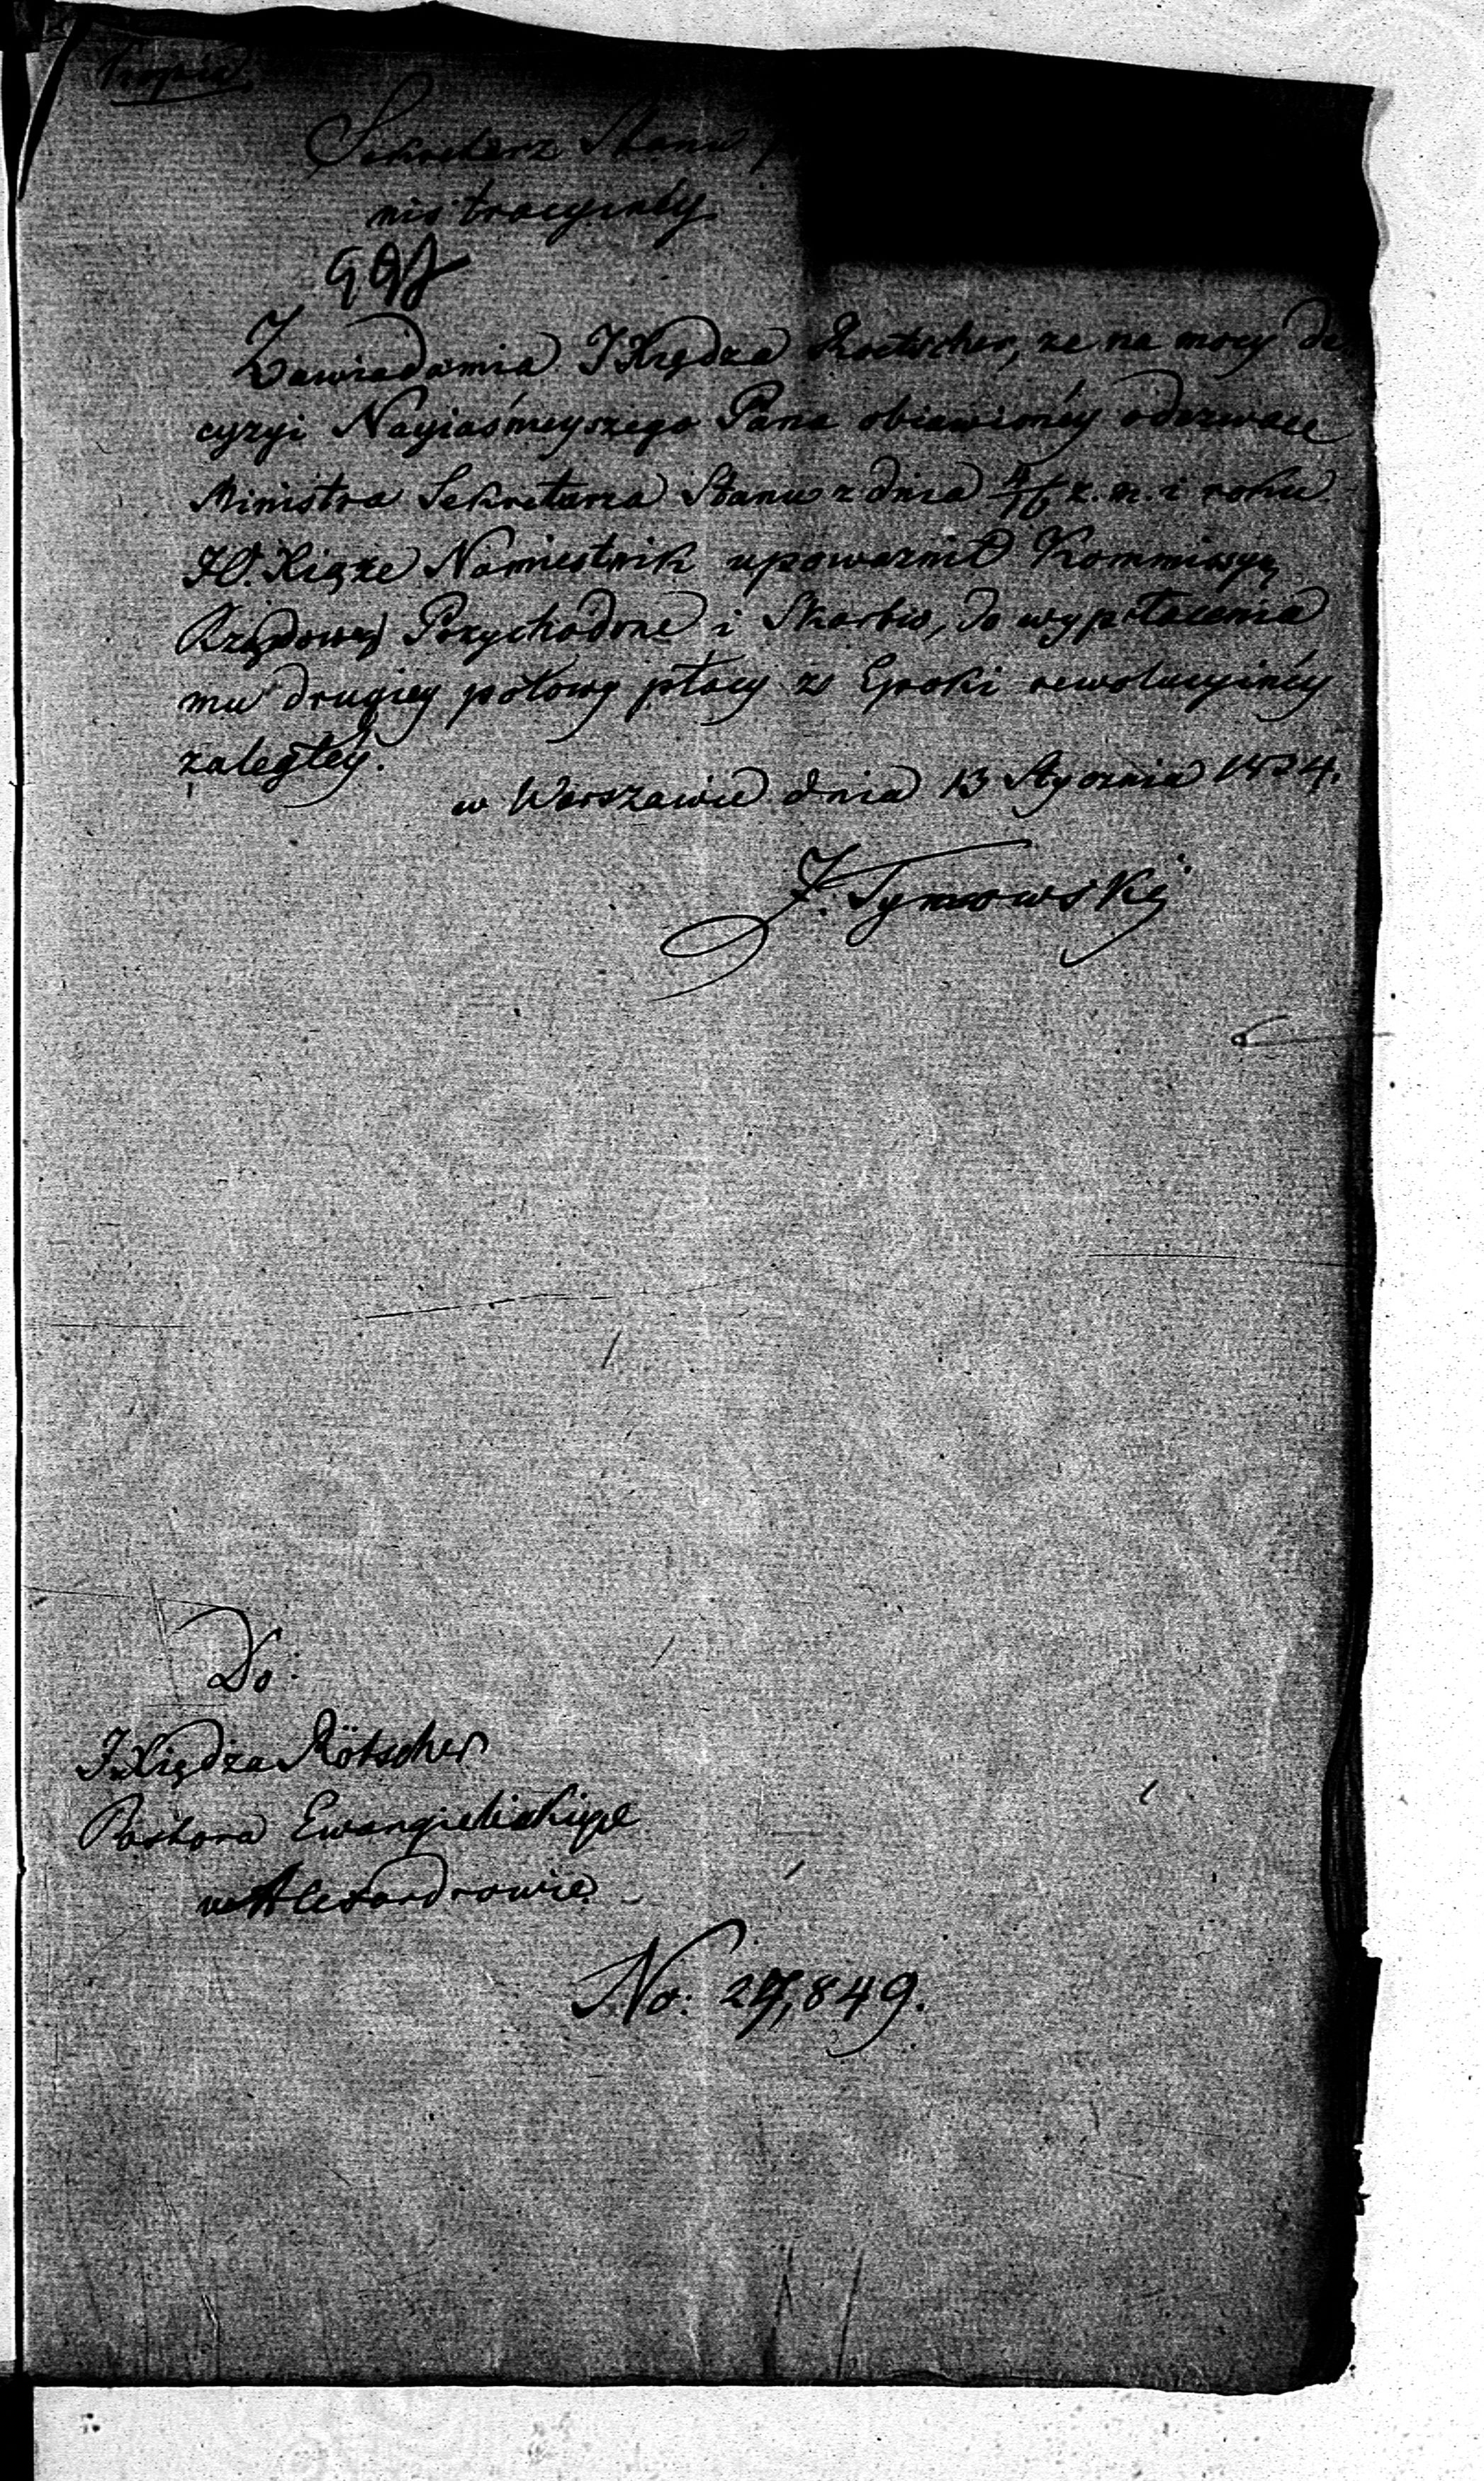 Kopia
Sekretarz Stanu
nistracyiney
Zawiadamia JXiędza Roetscher, że na mocy de
cyzyi Nayiaśnieyszego Pana obiawioney odezwą
Ministra Sekretarza Stanu z dnia z. m. i roku
JO. Xiąże Namiestnik upoważnił Kommissyą
Rządową Przychodów i Skarbu, do wypłacenia
mu drugiey połowy płacy z Epoki rewolucyiney
zaległey.
w Warszawie dnia 13 Stycznia 1834.
J. Tymowski
Do:
JXiędza Rötscher
Pastora Ewangielickiego
w Alexandrowie
No: 27,849.